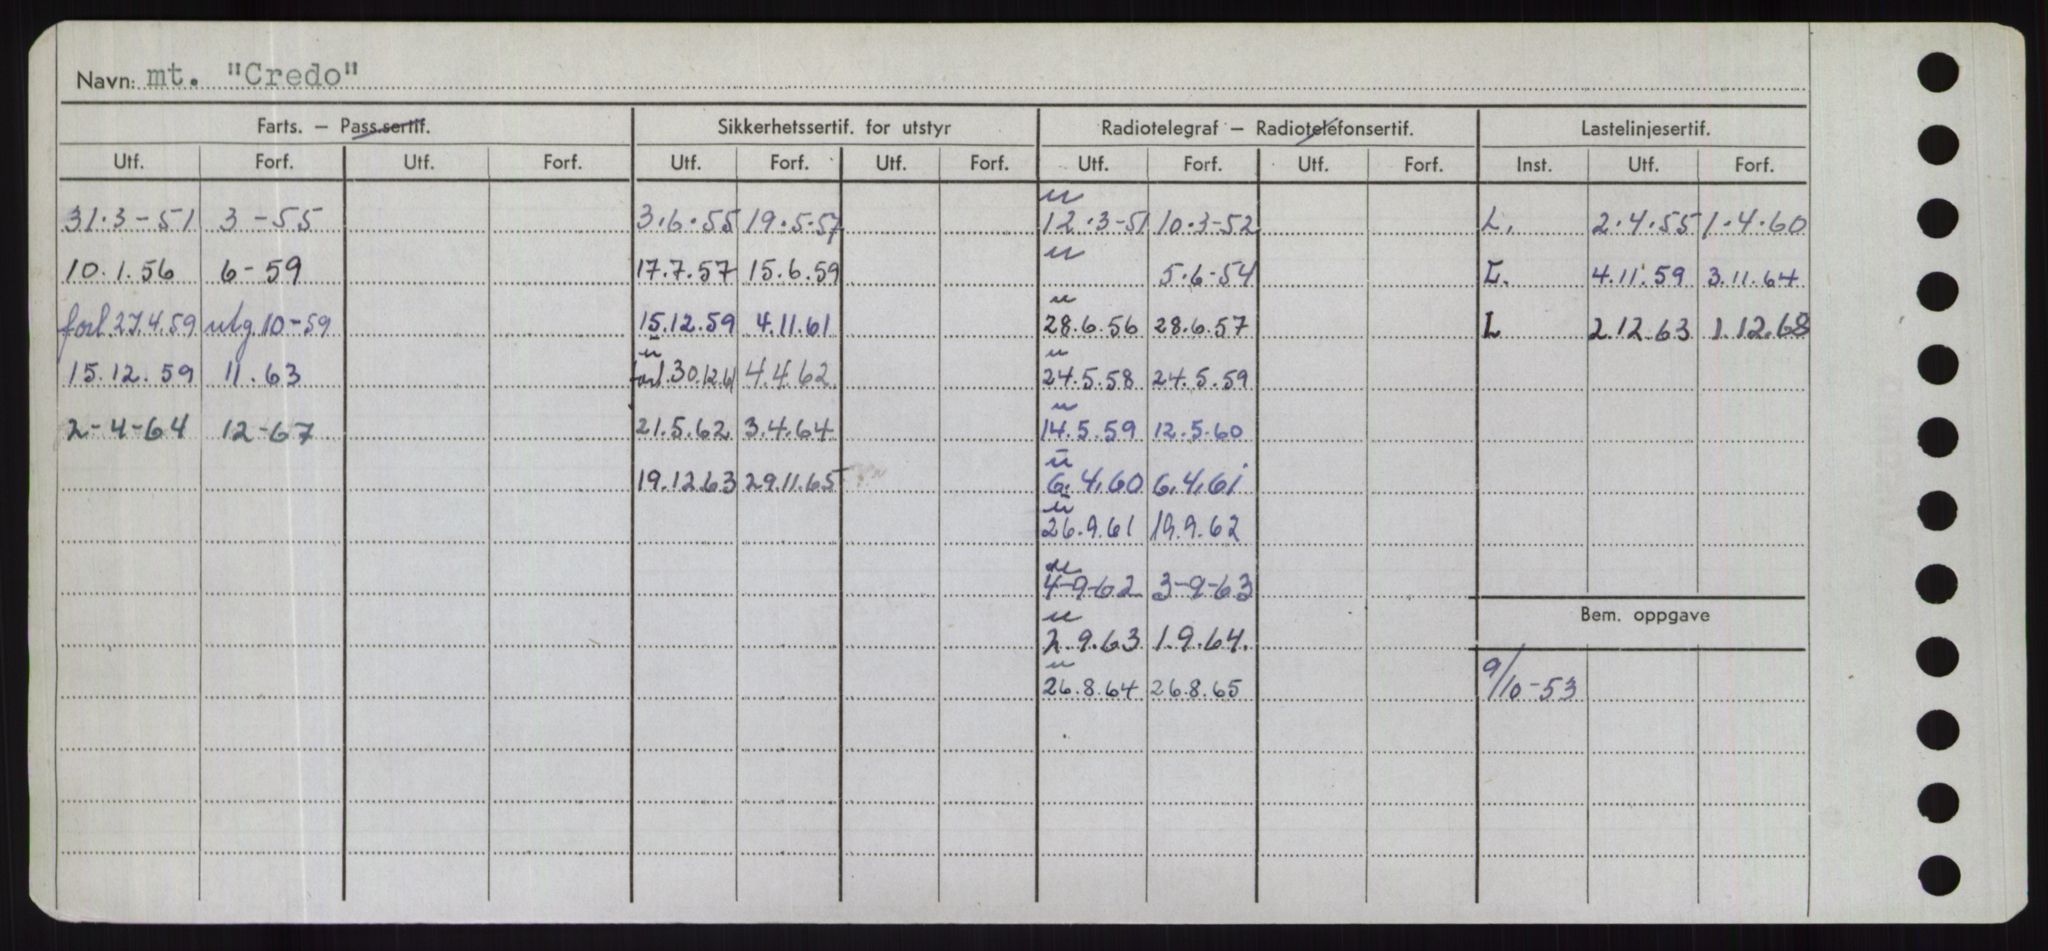 Navn: mt. "Credo"
Farts. – Pass.sertif. Sikkerhetssertif. for utstyr Radiotelegraf – Radiotelefonsertif. Lastelinjesertif.
Utf. Forf. Utf. Forf. Utf. Forf. Utf. Forf. Utf. Forf. Utf. Forf. Inst. Utf. Forf.
u
31.3-51 3-55 3.6.55 19.5.57 12.3-51 10.3-52 L. 2.4.55 1.4.60
u
10.1.56 6-59 17.7.57 15.6.59 5.6-54 L. 4.11.59 3.11.64
u
forl.27.4.59 utg.10-59 15.12.59 4.11.61 28.6.56 28.6.57 L 2.12.63 1.12.68
u u
15.12.59 11.63 forl.30.12.61 4.4.62 24.5.58 24.5.59
u
2-4-64 12-67 21.5.62 3.4.64 14.5.59 12.5.60
u
19.12.63 29.11.65 6.4.60 6.4.61
u
26.9.61 19.9.62
u
4-9-62 3-9-63
Bem. oppgave
u
2.9.63 1.9.64.
u
26.8.64 26.8.65 9/10-53